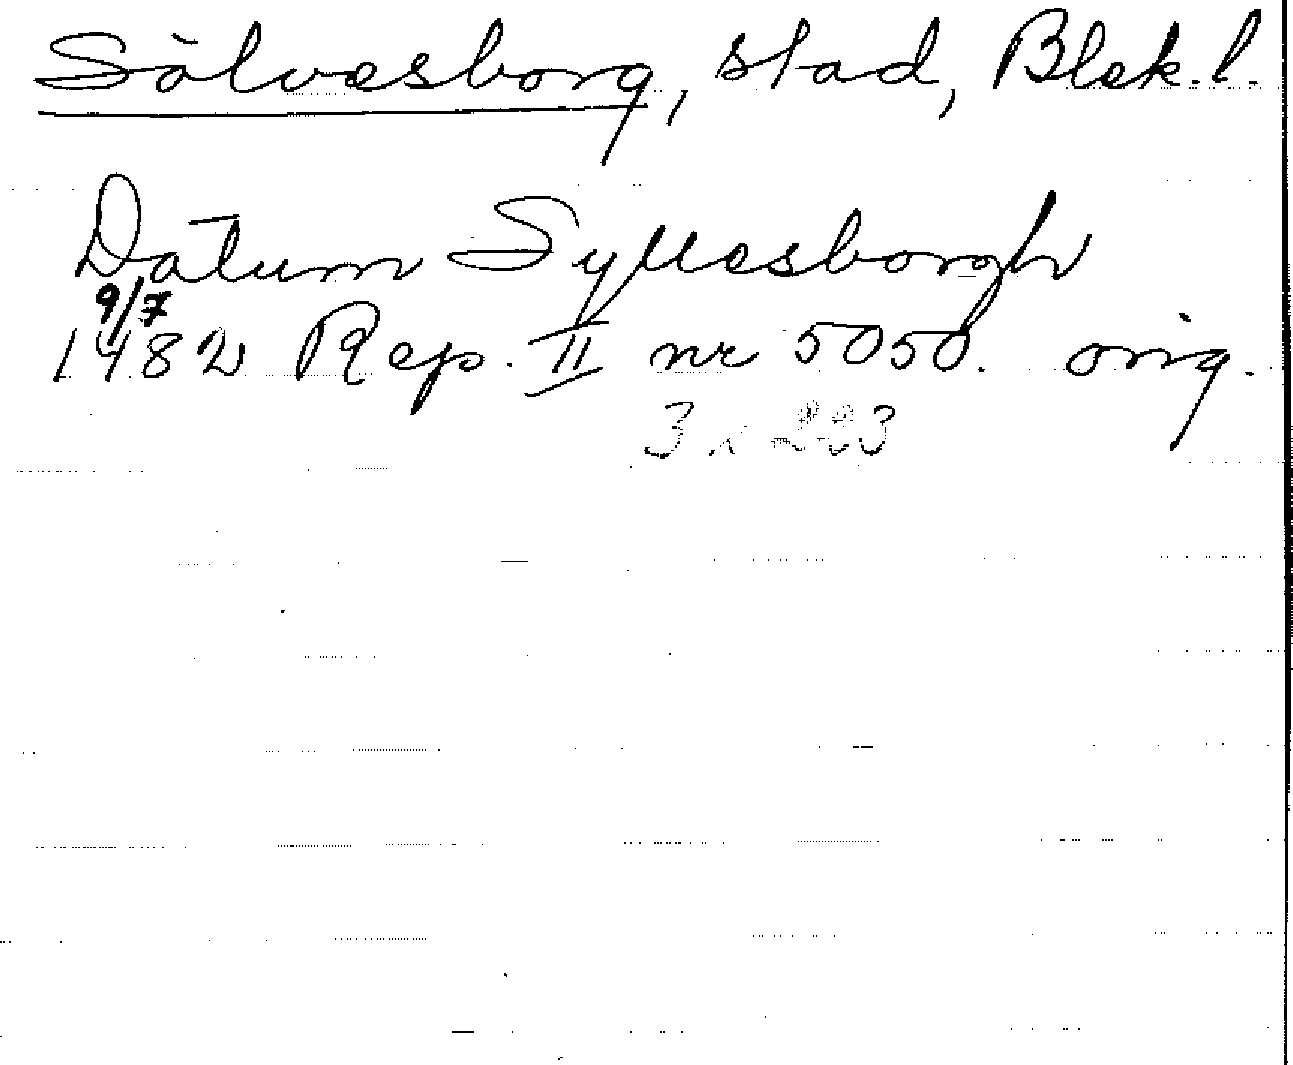 Sölvesborg, stad, Blek.l.
Datum Syllesborgh
9/7
1482 Rep. II nr 5050. orig.
3 x 223